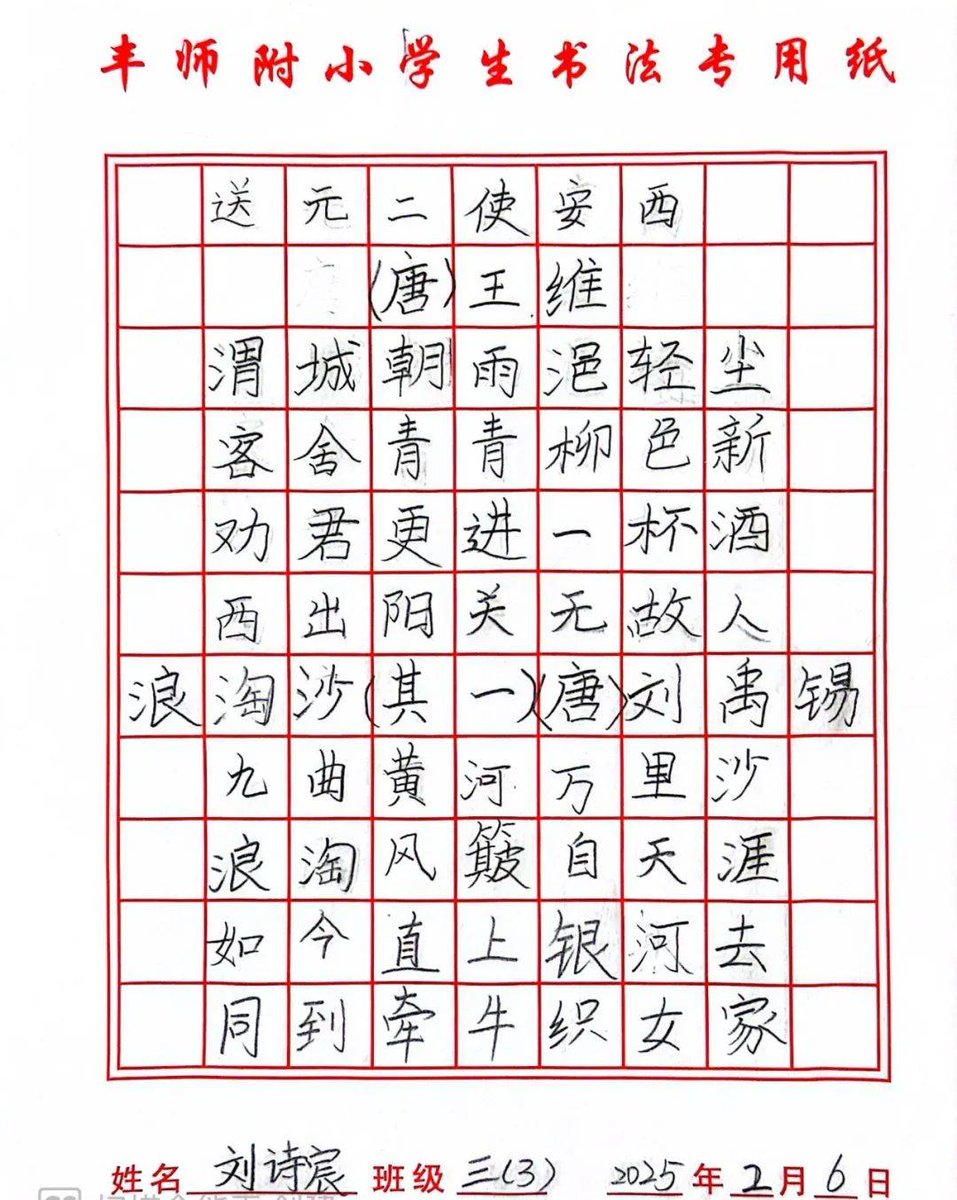 丰师附小学生书法专用纸
送元二使安西
(唐)王维
渭城朝雨浥轻尘
客舍青青柳色新
劝君更进一杯酒
西出阳关无故人
浪淘沙(其一)(唐)刘禹锡
九曲黄河万里沙
浪淘风簸自天涯
如今直上银河去
同到牵牛织女家
姓名 刘诗宸 班级 三(3) 2025年2月6日